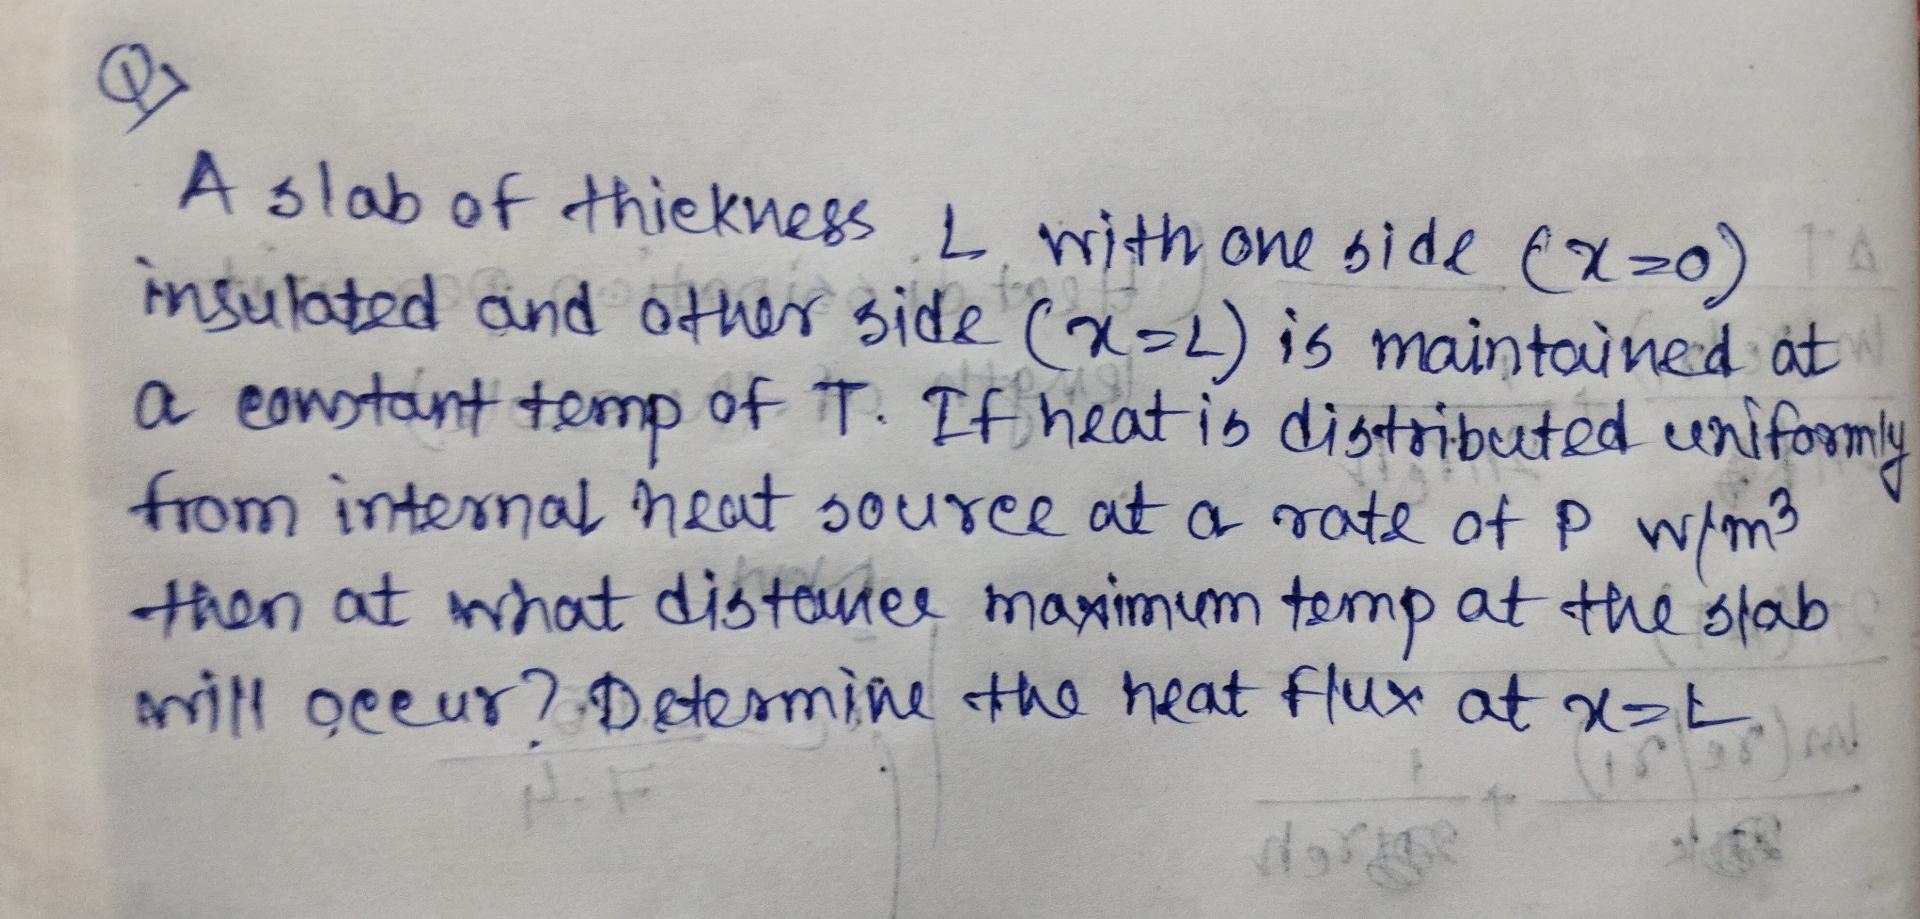 Q>
A slab of thickness L with one side (x=0)
insulated and other side (x=L) is maintained at
a constant temp of T. If heat is distributed uniformly
from internal heat source at a rate of P W/m³
then at what distance maximum temp at the slab
will occur? Determine the heat flux at x=L